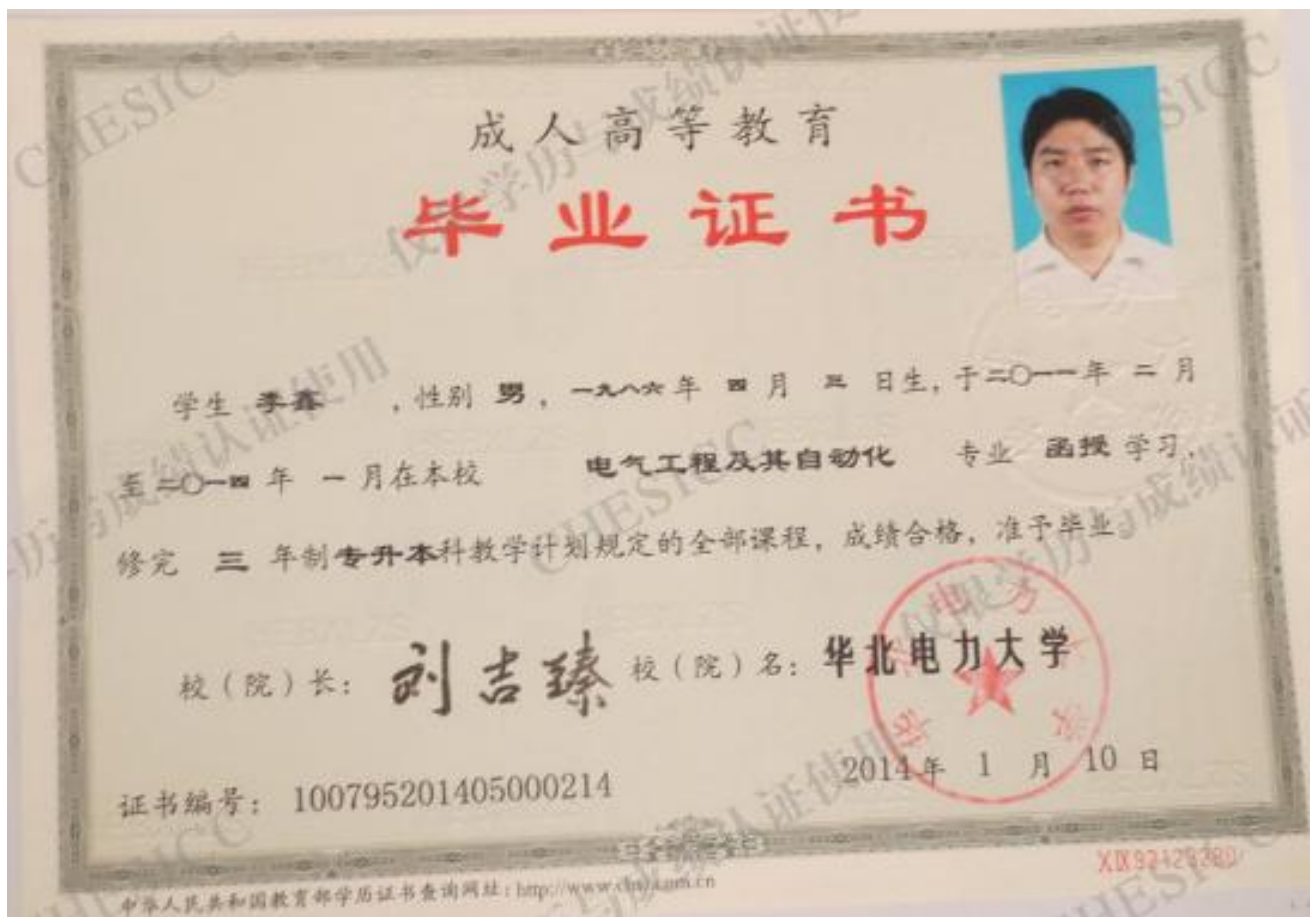 成人高等教育
毕业证书
学生 李鑫 ，性别 男，一九八六年 四 月 三 日生，于二〇一一年 二 月
至二〇一四 年 一 月在本校 电气工程及其自动化 专业 函授 学习，
修完 三 年制专升本科教学计划规定的全部课程，成绩合格，准予毕业。
校（院）长： 刘吉臻 校（院）名：华北电力大学
华北电力大学
证书编号： 100795201405000214 2014年 1 月 10 日
中华人民共和国教育部学历证书查询网址：http://www.chsi.com.cn
CHESICC
仅限学历与成绩认证使用